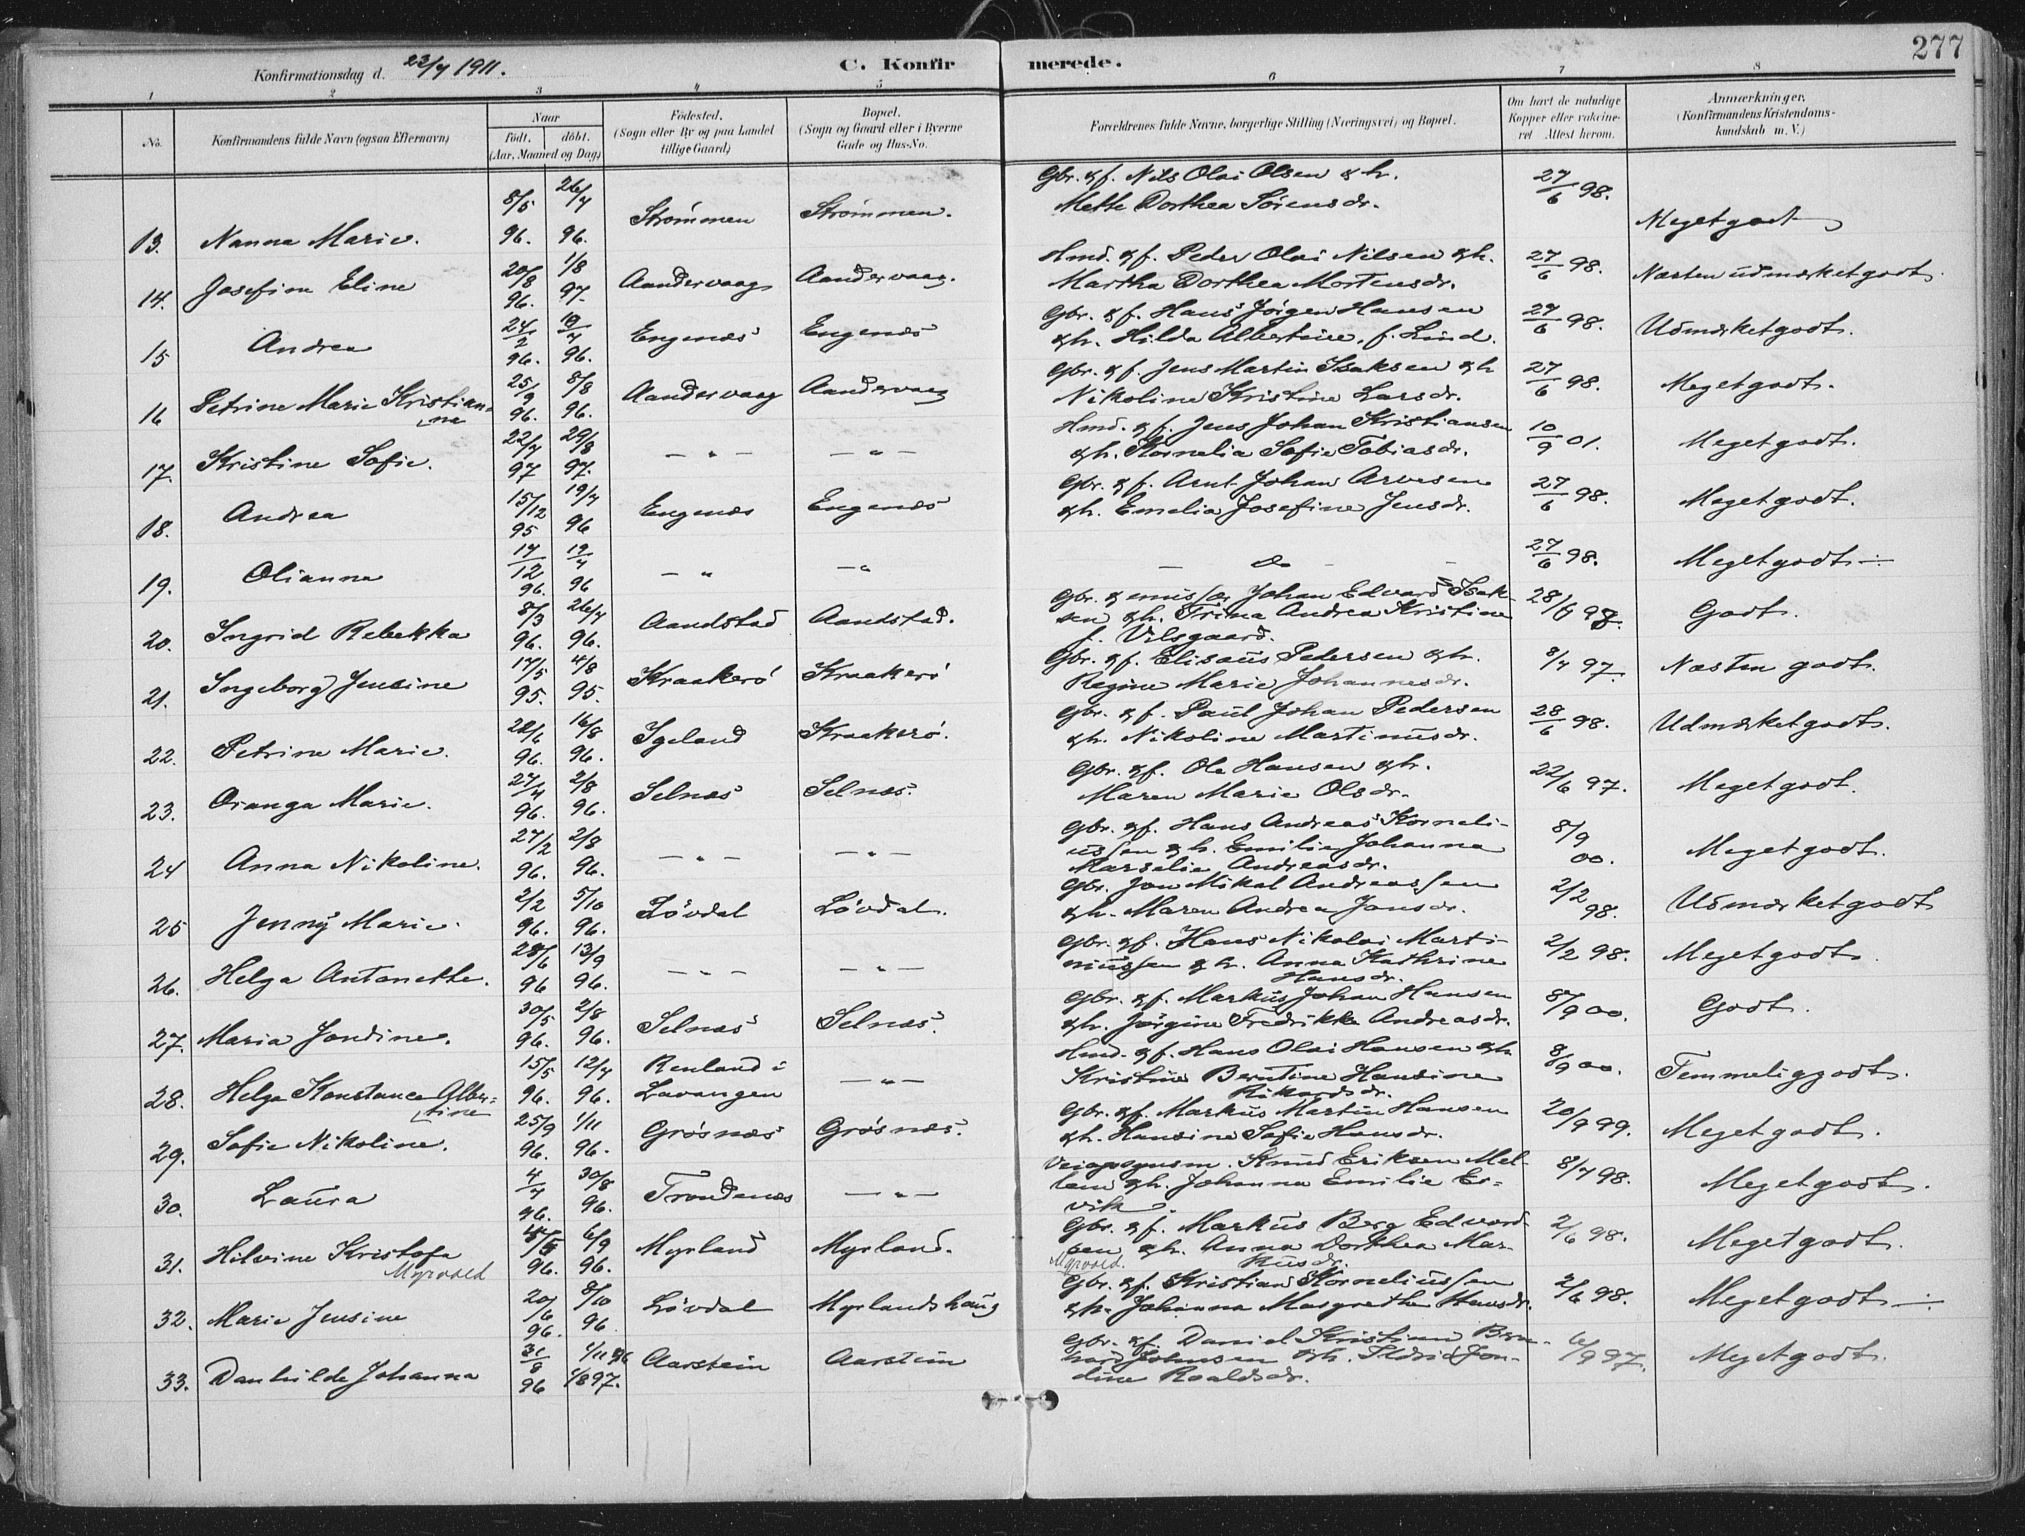 277
Konfirmationsdag d. 23/7 1911.
C. Konfirmerede.
1 2 3 4 5 6 7 8
No.
Konfirmandens fulde Navn (ogsaa Efternavn)
Naar
födt. döbt.
(Aar, Maaned og Dag)
Födested.
(Sogn eller By og paa Landet
tillige Gaard)
Bopæl.
(Sogn og Gaard eller i Byerne
Gade og Hus-No.
Forældrenes fulde Navne, borgerlige Stilling (Næringsvei) og Bopæl.
Om havt de naturlige
Kopper eller vaccine-
ret Attest herom.
Anmærkninger.
(Konfirmandens Kristendoms-
kundskab m. V.)
13. Nanna Marie. 8/5 96. 26/7 96. Strömmen Strömmen. Gbr. & f. Nils Olai Olsen & h. 27/6 98. Meget godt
Mette Dorthea Sörensdr.
14. Josefine Eline 20/8 96. 1/8 97. Aandervaag Aandervaag. Hmd. & f. Peder Olai Nilsen & h. 27/6 98. Næsten udmærket godt.
Martha Dorthea Mortensdr.
15 Andrea 24/2 96. 19/7 96. Engenæs Engenæs Gbr. & f. Hans Jörgen Hansen 27/6 98. Udmærket godt.
& h. Hilda Albertine, f. Lind.
16 Petrine Marie Kristian- 25/9 96. 8/8 96. Aandervaag Aandervaag Gbr. & f. Jens Martin Isaksen & h 27/6 98. Meget godt.
ne Nikoline Kristine Larsdr.
17. Kristine Sofie. 22/7 97 29/8 97. — „ — — „ — Hmd. & f. Jens Johan Kristiansen 10/9 01. Meget godt.
& h. Kornelia Sofie Tobiasdr.
18. Andrea 15/12 95 19/7 96 Engenæs Engenæs Gbr. & f. Arnt Johan Arvesen 27/6 98. Meget godt.
& h. Emelia Josefine Jensdr.
19. Olianna 17/12 96. 19/7 96 — „ — „ — do - - 27/6 98. Meget godt.
20. Ingrid Rebekka 8/3 96. 26/7 96. Aandstad Aandstad. Gbr. & Johan Edvard Isak- 28/6 98. Godt.
sen & h. Trina Andrea Kristine
f. Vilsgaard.
21. Ingeborg Jensine 17/5 95. 4/8 95. Kraakerö Kraakerö Gbr. & f. Elisæus Pedersen & h. 8/7 97. Næsten godt.
Regine Marie Johannesdr.
22. Petrine Marie. 22/6 96. 16/8 96. Igeland Kraakerö. Gbr. & f. Paul Johan Pedersen 28/6 98. Udmærket godt.
& h. Nikoline Martinusdr.
23. Oranga Marie. 27/4 96. 2/8 96. Selnæs Selnæs. Gbr. & f. Ole Hansen & h. 22/6 97. Meget godt.
Maren Marie Olsdr.
24 Anna Nikoline. 27/2 96. 2/8 96. — „ — — „ — Gbr. & f. Hans Andreas Korneli- 8/9 00. Meget godt.
ussen & h. Emilie Johanna
Marselie Andreasdr.
25 Jenny Marie. 2/2 96. 5/10 96. Lövdal Lövdal. Gbr. Jon Mikal Andreassen 2/2 98. Udmærket godt
& h. Maren Andrea Jonsdr.
26. Helga Antonette. 28/6 96 13/9 96. — „ — — „ — Gbr. & f. Hans Nikolai Marti- 2/2 98. Meget godt.
niussen & h. Anna Kathrine
Hansdr.
27. Maria Jondine. 30/5 96. 2/8 96. Selnæs Selnæs. Gbr. & f. Markus Johan Hansen 8/9 00. Godt.
& h. Jörgine Fredrikke Andreasdr.
28. Helga Konstance Alber- 15/5 96. 12/7 96. Renland i — „ — Hmd. & f. Hans Olai Hansen & h 8/9 00. Temmelig godt.
tine Lavangen Kristine Berntine Hansine
Rikardsdr.
29. Sofie Nikoline. 25/9 96. 1/11 96. Grösnæs Grösnæs. Gbr. & f. Markus Martin Hansen 20/9 99. Meget godt.
& h. Hansine Sofie Hansdr.
30. Laura 4/7 96. 30/8 96. Trondenæs — „ — Knud Eriksen Mel- 8/7 98. Meget godt.
lem & h. Johanna Emilie Er-
vik.
31. Hilvine Kristofa 96. 6/9 96. Myrland Myrland. Gbr. & f. Markus Berg Edvard- 2/6 98. Meget godt.
Myrvold sen & h. Anna Dorthea Mar-
Myrvold. kusdr.
32. Marie Jensine 20/6 96. 8/10 96. Lövdal Myrlandshaug Gbr. & f. Kristian Korneliussen 2/6 98. Meget godt.
& h. Johanna Margrethe Hansdr.
33. Danhilde Johanna 31/8 96 1/11 96 1/8 97. Aarstein Aarstein Gbr. & f. Daniel Kristian Bern- 6/9 97. Meget godt.
hard Johnsen & h. Jon-
dine Roaldsdr.